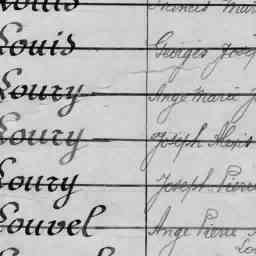 Louis
Louis Georges Joseph
Loury Ange Marie J
Loury Joseph Alexis
Loury Joseph Pierre
Louvel Ange Pierre